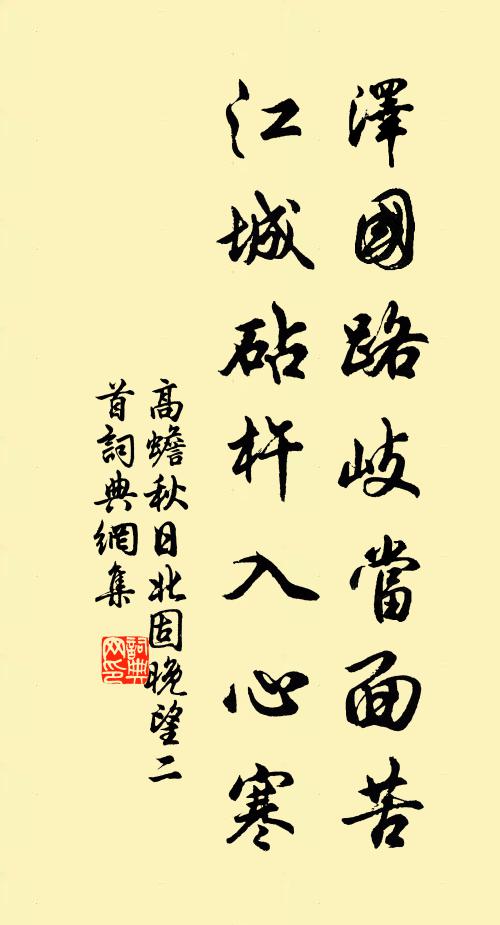 澤國路岐當面苦
江城砧杵入心寒
高蟾秋日北固晚望二
首詞典網集
詞典网印